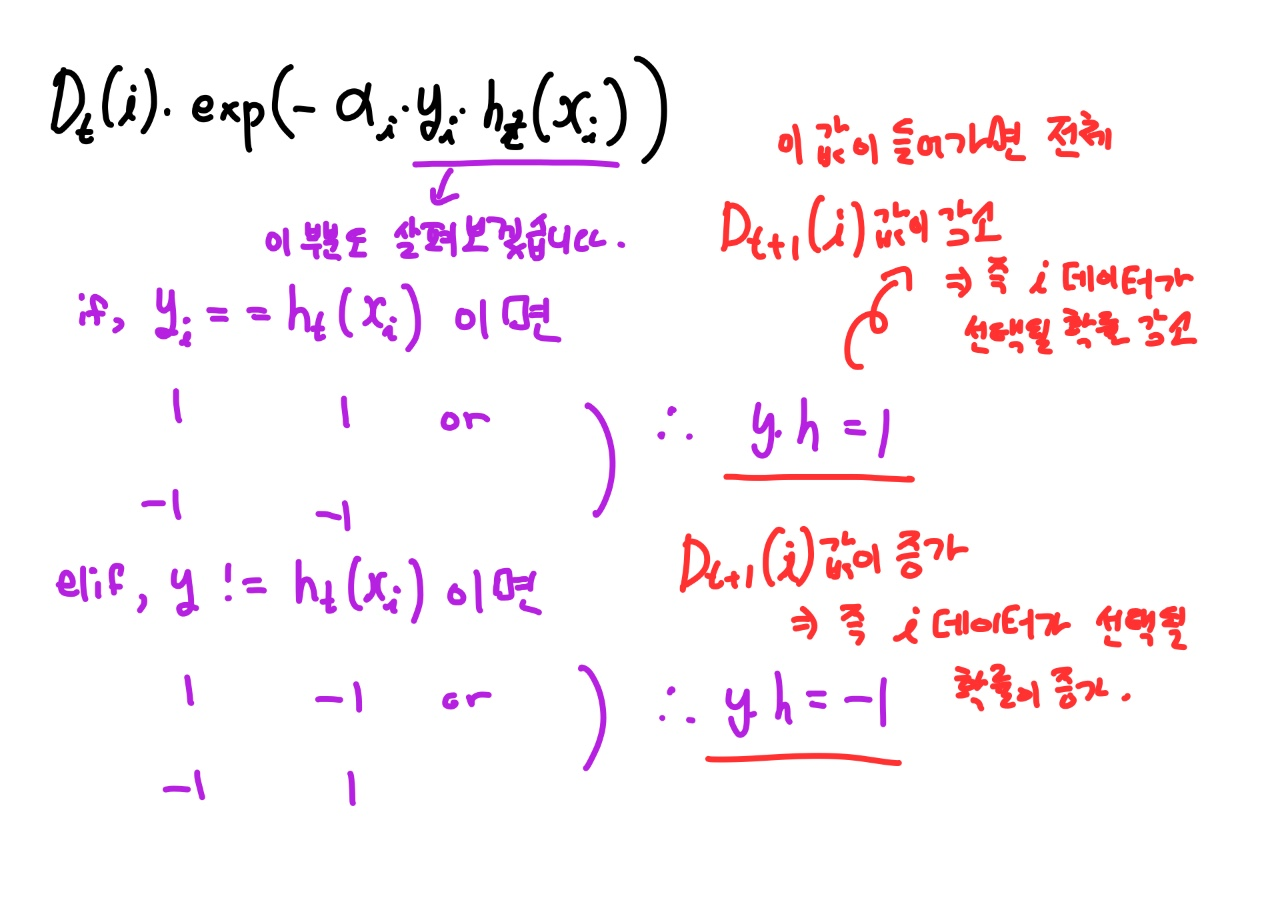 D_t(i) · exp(- α_i · y_i · h_t(x_i))
이 부분도 살펴보겠습니다.
if, y_i == h_t(x_i) 이면
1 1 or
-1 -1
∴ y·h = 1
이 값이 들어가면 전체
D_{t+1}(i) 값이 감소
⇒ 즉 i 데이터가
선택될 확률 감소
elif, y != h_t(x_i) 이면
1 -1 or
-1 1
∴ y·h = -1
D_{t+1}(i) 값이 증가
⇒ 즉 i 데이터가 선택될
확률이 증가.